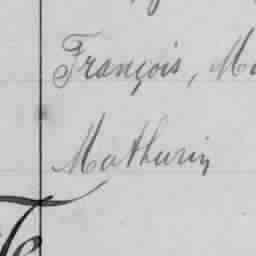 François, Ma
Mathurin